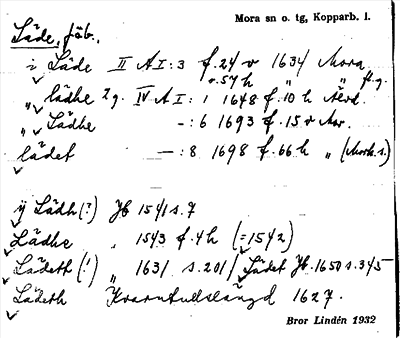 Mora sn o. tg, Kopparb. l.
Läde, fäb.
i Läde II A I : 3 f. 24 v 1634 Mora
o. 57 h " " fl. g.
" lädhe 2 g. IV A I : 1 1648 f. 10 h
" Lädhe - : 6 1693 f. 15 v Mor.
lädet - : 8 1698 f. 66 h "
ij Lädh (?) Jb 1541 s. 7
Lädhe " 1543 f. 4 h (= 1542)
Lädeth (!) " 1631 s. 201 / Lädet Jb. 1650 s. 345
Lädeth Kvarntullslängd 1627.
Bror Lindén 1932